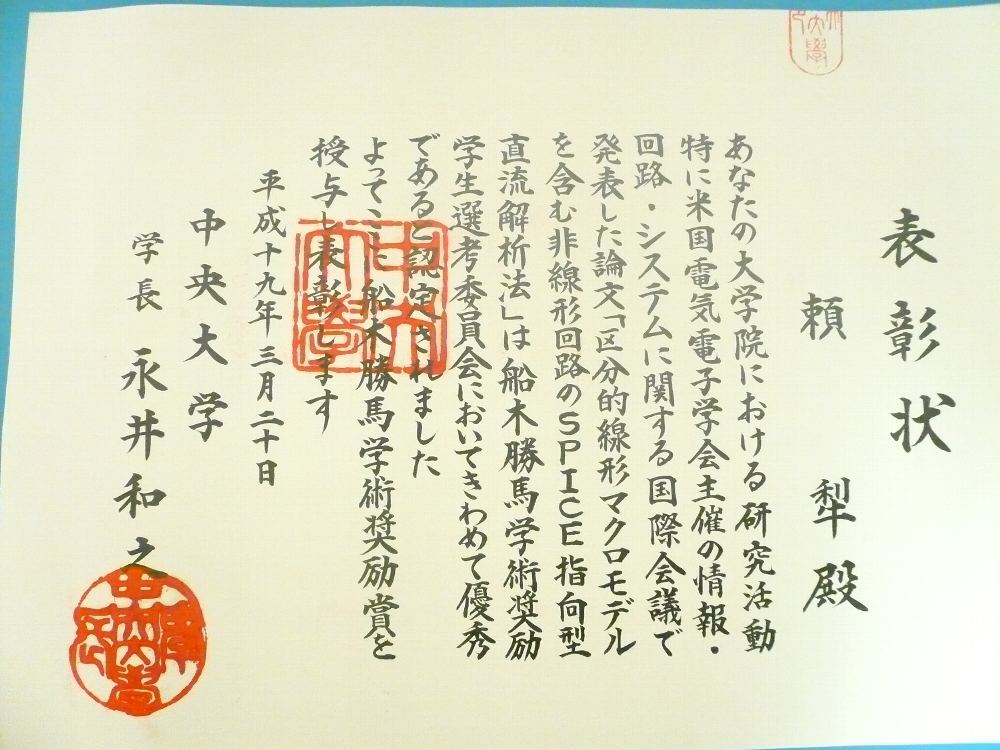 表彰状
頼 犁 殿
あなたの大学院における研究活動
特に米国電気電子学会主催の情報・
回路・システムに関する国際会議で
発表した論文「区分的線形マクロモデル
を含む非線形回路のSPICE指向型
直流解析法」は船木勝馬学術奨励
学生選考委員会においてきわめて優秀
であると認定されました
よってここに船木勝馬学術奨励賞を
授与し表彰します
平成十九年三月二十日
中央大学
学長 永井和之